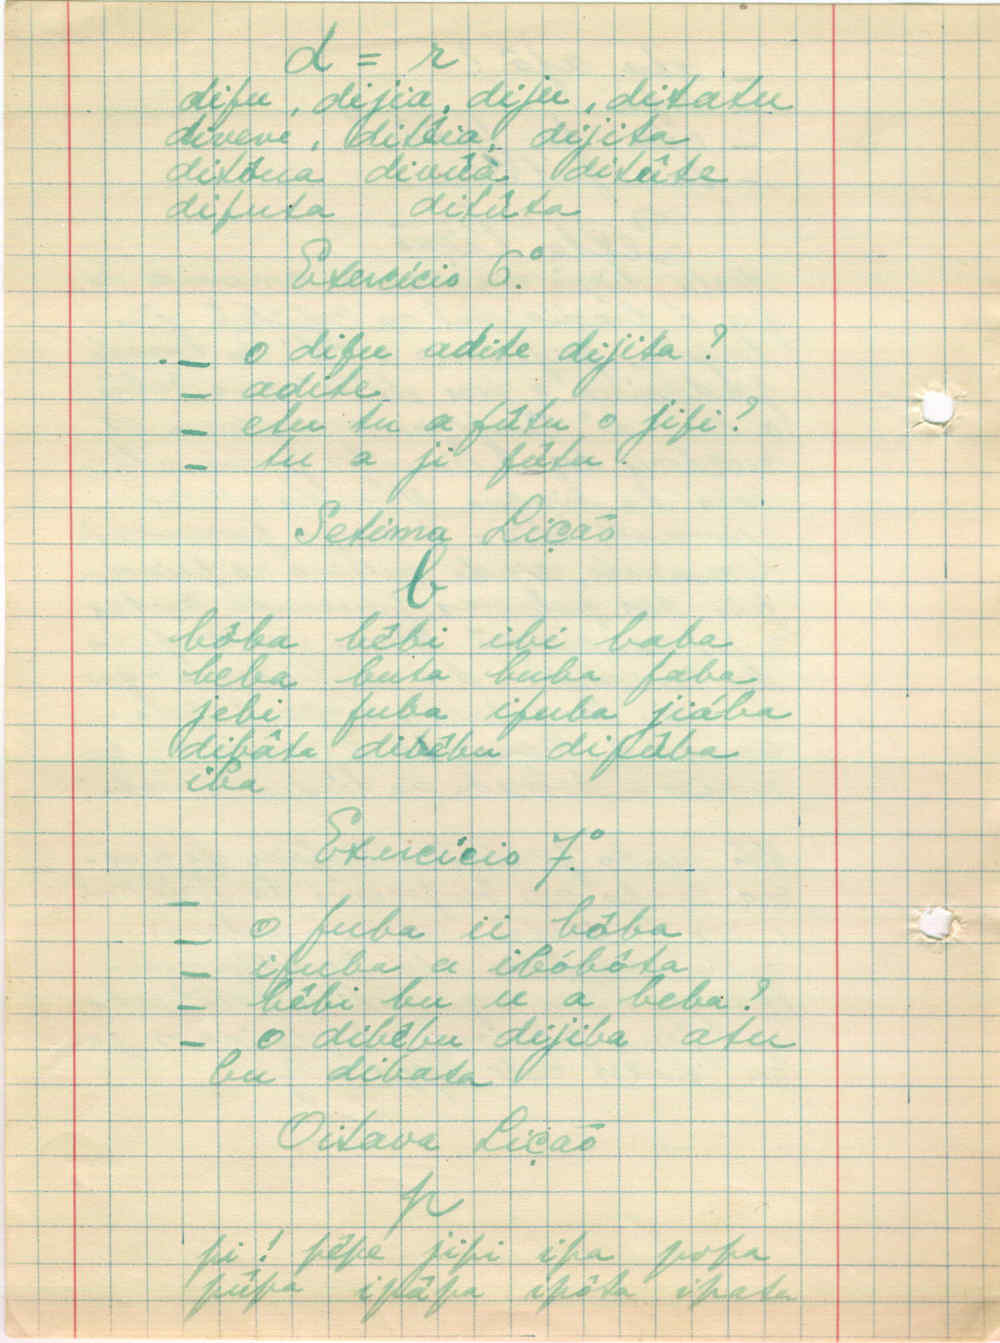 d = r
difu, dijia, diju, ditatu
diveve, dibia, dijita
ditôna divûa ditûte
difuta ditûta
Exercício 6.º
- o difu adite dijita?
- adite
- etu tu a fûtu o jifi?
- tu a ji fûtu.
Setima Lição
b
bôba bêbi ibi baba
beba buta buba faba
jebi fuba ifuba jiába
dibâta dibêbu difûba
iba
Exercício 7.º
-
- o fuba ii bôba
- ifuba u ibóbôta
- bêbi bu u a beba?
- o dibêbu dijiba atu
bu dibata
Oitava Lição
p
pi! pêpe jipi ipa popa
pûpa ipâpa ipôta ipata